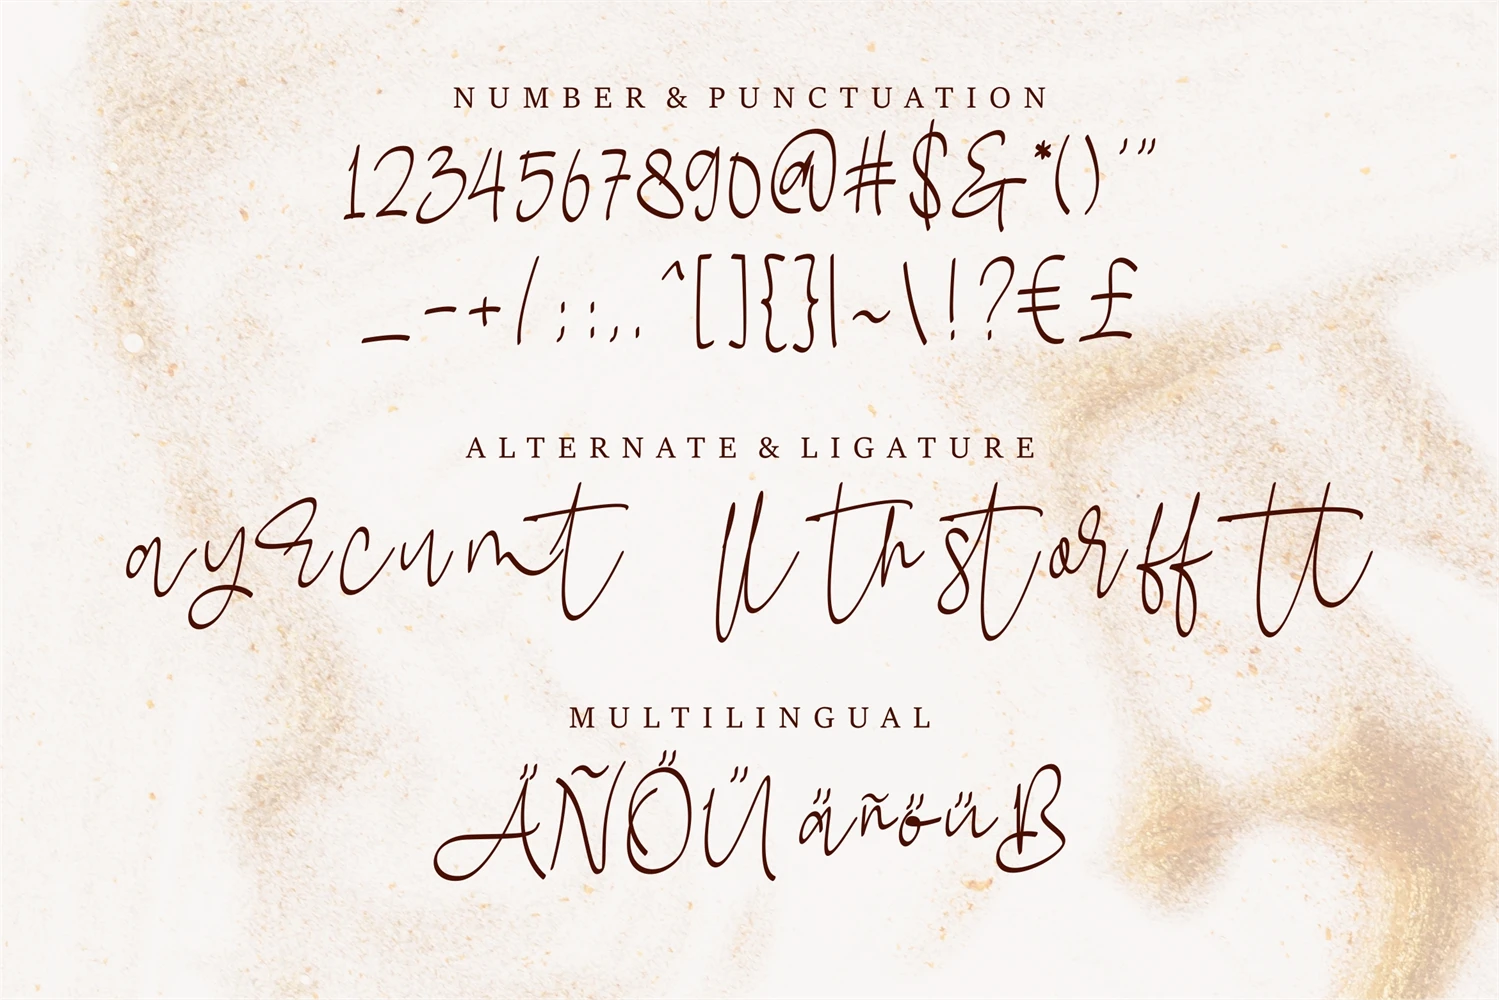 NUMBER & PUNCTUATION
1234567890@#$&*()'"
_-+/;:,.^[]{}|~\!?€£
ALTERNATE & LIGATURE
ayrcumt ll th st or ff tt
MULTILINGUAL
ÄÑÖÜäñöüß